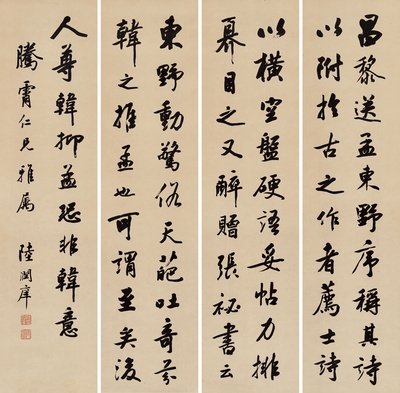 昌黎送孟東野序稱其詩
以附於古之作者薦士詩
以橫空盤硬語妥帖力排
奡目之又醉贈張祕書云
東野動驚俗天葩吐奇芬
韓之推孟也可謂至矣後
人尊韓抑孟恐非韓意
騰霄仁兄雅屬 陸潤庠